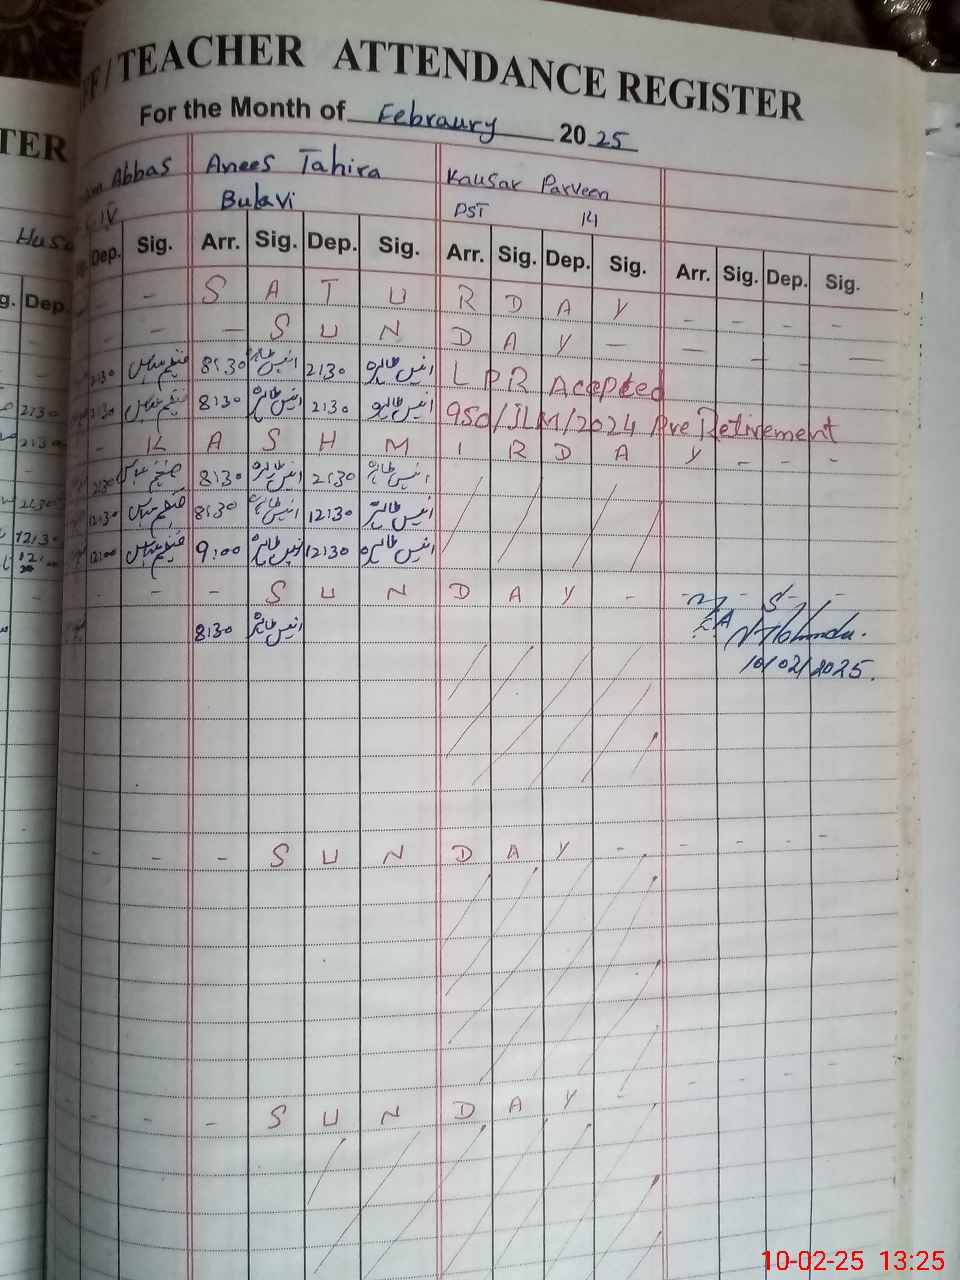 TEACHER ATTENDANCE REGISTER
For the Month of Febraury 20 25
TER
Abbas Anees Tahira Kausar Parveen
IV Bulavi PST 14
Dep. Sig. Arr. Sig. Dep. Sig. Arr. Sig. Dep. Sig. Arr. Sig. Dep. Sig.
g. Dep
- S A T U R D A Y - - - -
- - S U N D A Y - - - - -
2:30 8:30 انیس طاہرہ 2:30 انیس طاہرہ L P R Acepted
2:30 2:30 8:30 انیس طاہرہ 2:30 انیس طاہرہ 950/JLM/2024 Pre Retirement
2:30 - K A S H M I R D A Y - - -
2:30 8:30 انیس طاہرہ 2:30 انیس طاہرہ
2:30 12:30 8:30 انیس طاہرہ 12:30 انیس طاہرہ
12:30 12:00 9:00 انیس طاہرہ 12:30 انیس طاہرہ
- - - S U N D A Y - - - - -
8:30 انیس طاہرہ
10/02/2025.
- - - S U N D A Y - - - - -
- - S U N D A Y - - - - -
10-02-25 13:25